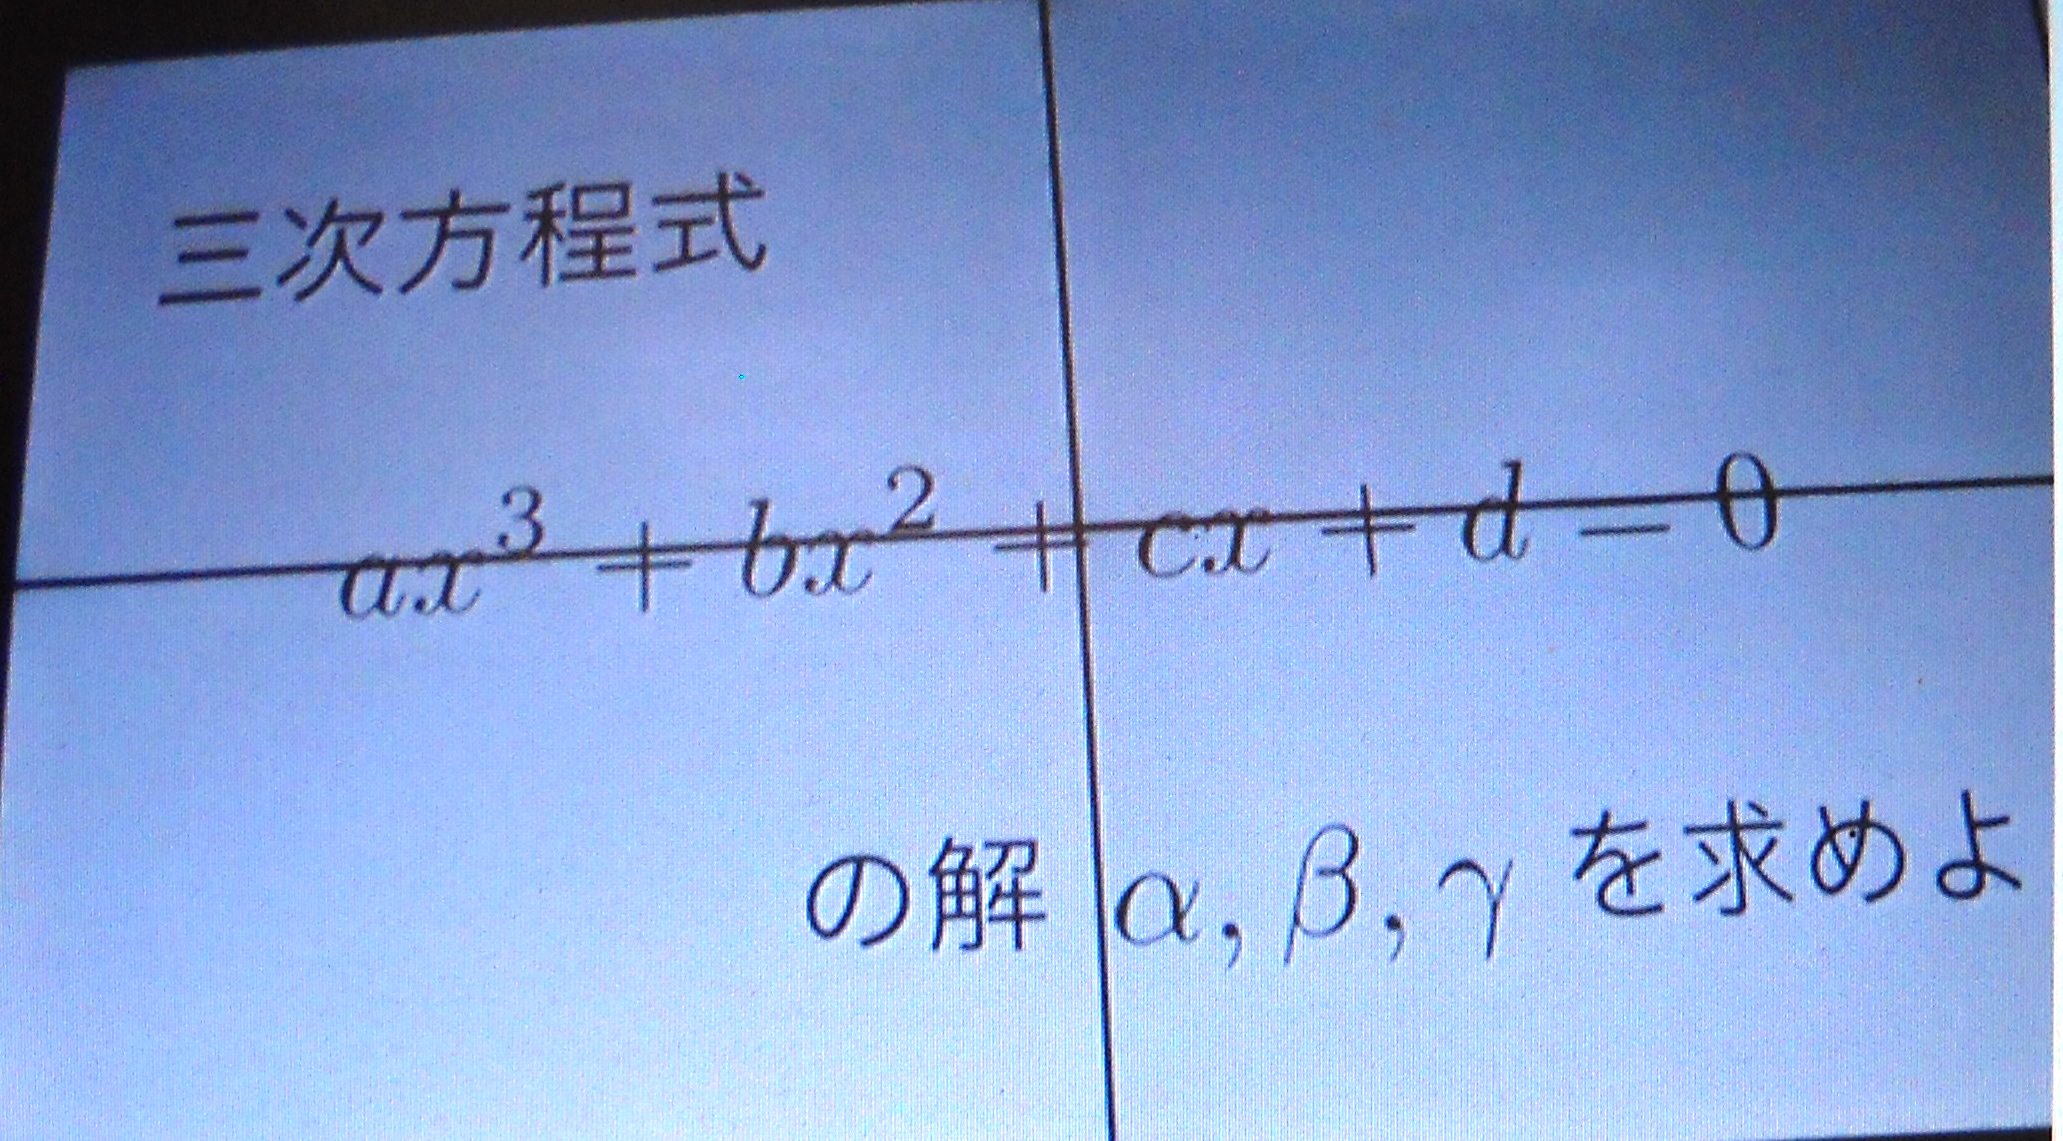 三次方程式
ax³ + bx² + cx + d = 0
の解 α, β, γ を求めよ